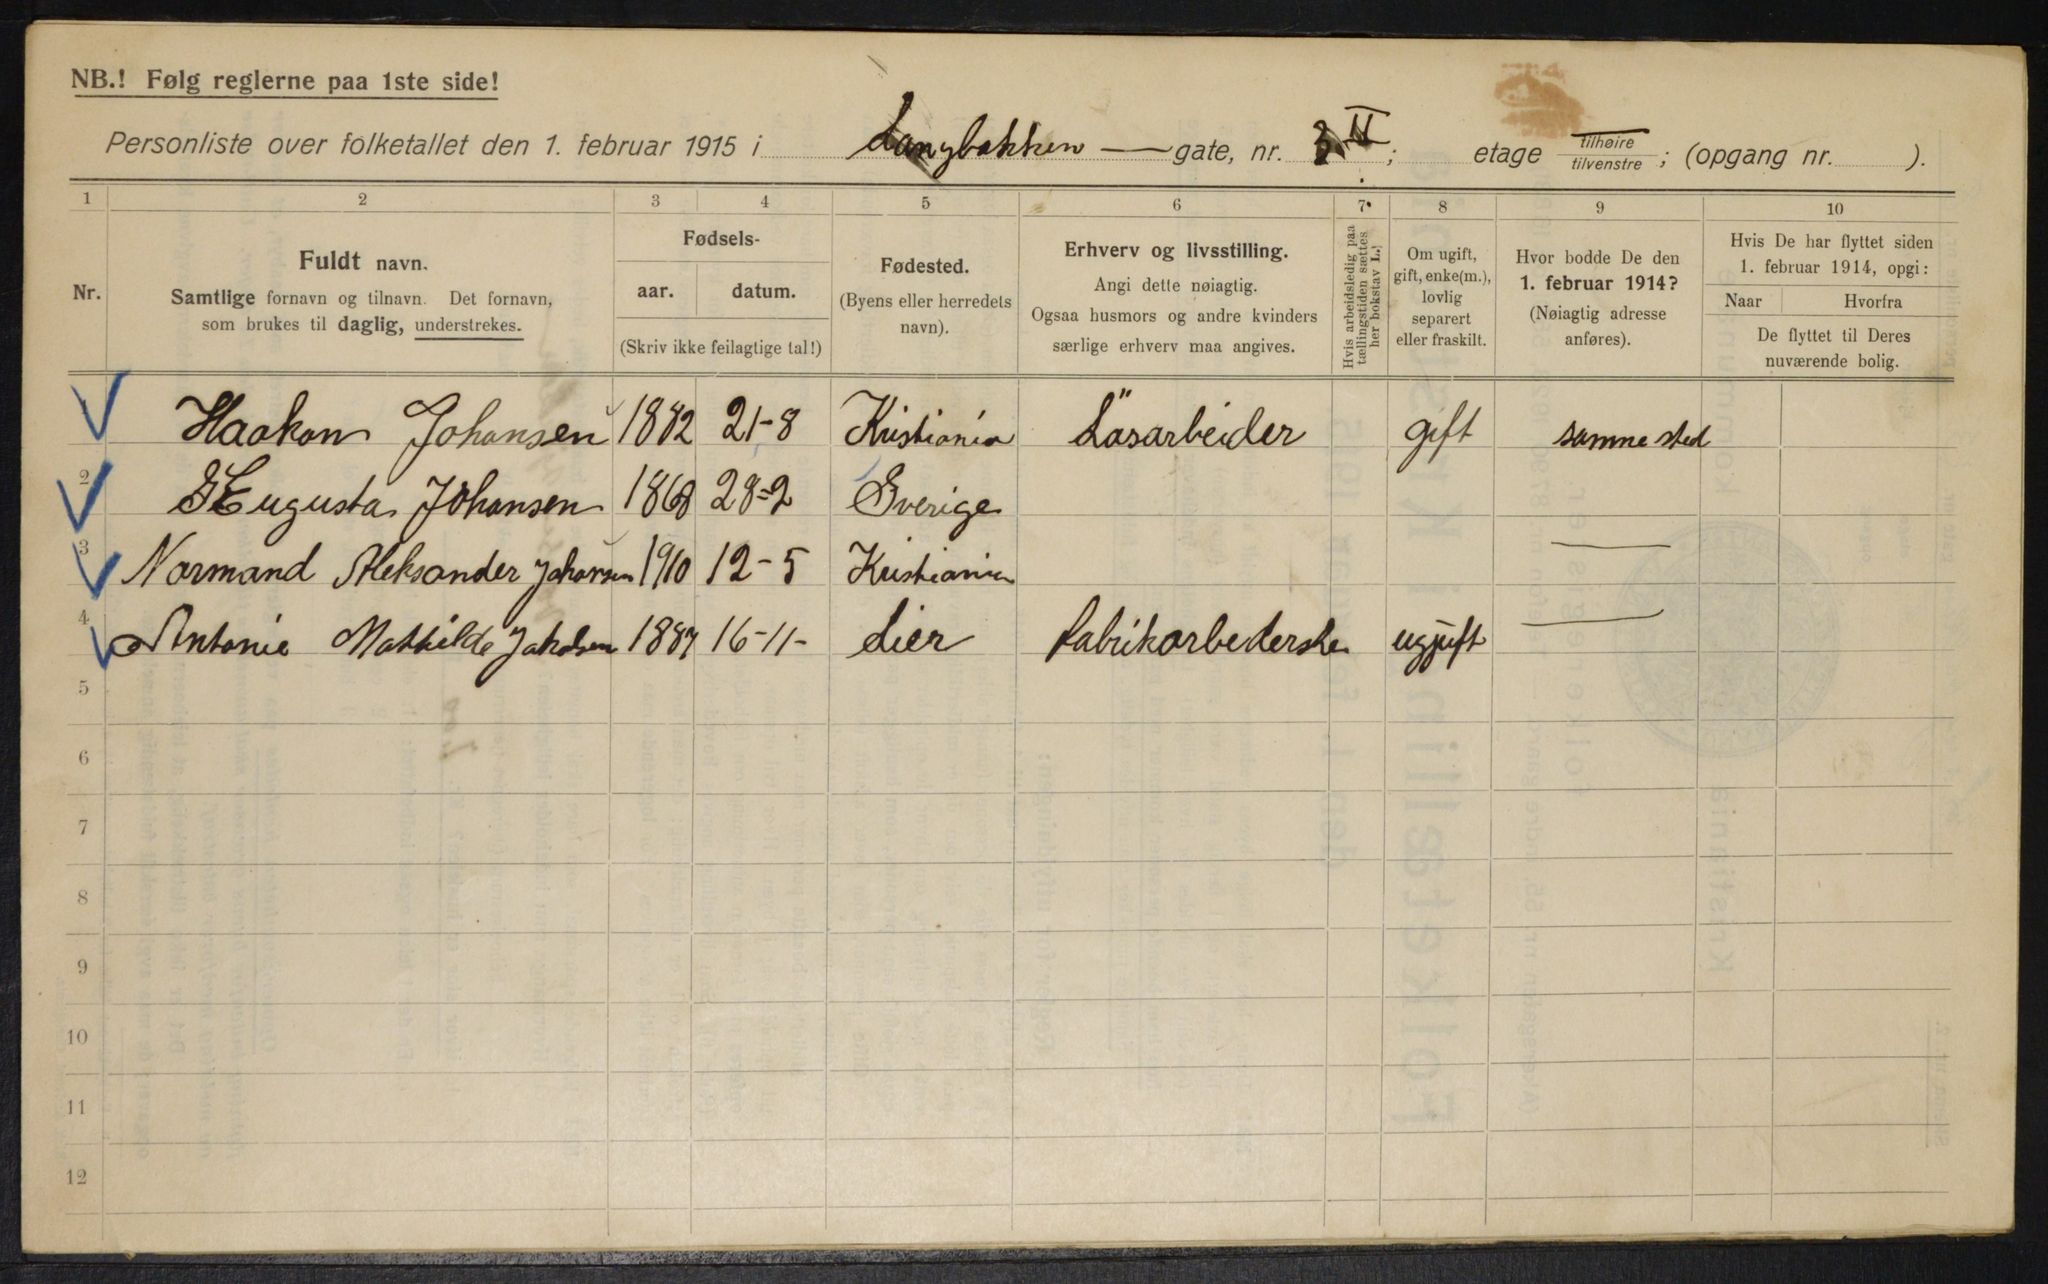 NB.! Følg reglerne paa 1ste side!
Personliste over folketallet den 1. februar 1915 i Langbakken — gate, nr. 3 II; etage tilhøire / tilvenstre; (opgang nr. ).
1 2 3 4 5 6 7 8 9 10
Nr.
Fuldt navn.
Samtlige fornavn og tilnavn. Det fornavn,
som brukes til daglig, understrekes.
Fødsels-
aar. datum.
(Skriv ikke feilagtige tal!)
Fødested.
(Byens eller herredets
navn).
Erhverv og livsstilling.
Angi dette nøiagtig.
Ogsaa husmors og andre kvinders
særlige erhverv maa angives.
Hvis arbeidsledig paa
tællingstiden sættes
her bokstav L.)
Om ugift,
gift, enke(m.),
lovlig
separert
eller fraskilt.
Hvor bodde De den
1. februar 1914?
(Nøiagtig adresse
anføres).
Hvis De har flyttet siden
1. februar 1914, opgi:
Naar Hvorfra
De flyttet til Deres
nuværende bolig.
Haakon Johansen 1882 21-8 Kristiania Løsarbeider gift samme sted
2 Augusta Johansen 1868 28-2 Sverige
3 Normand Aleksander Johansen 1910 12-5 Kristiania —
4 Antonie Mathilde Jakobsen 1887 16-11- Lier fabrikarbederske ugjift —
5
6
7
8
9
10
11
12